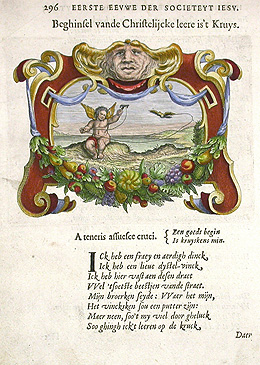 296 EERSTE EEUWE DER SOCIETEYT IESV.
Beghinsel vande Christelijcke leere is't Kruys.
A teneris assuesce cruci. { Een goedt begin
Is kruyskens min.
ICk heb een fraey en aerdigh dinck,
Ick heb een lieue dystel-vinck,
Ick heb hier vast aen desen draet
VVel 't soetste beestjen vande straet.
Mijn broerken seyde: VVaer het mijn,
Het vincksken sou een putter zijn:
Maer neen, soo't my viel door gheluck
Soo ghingh ick't leeren op de kruck,
Daer